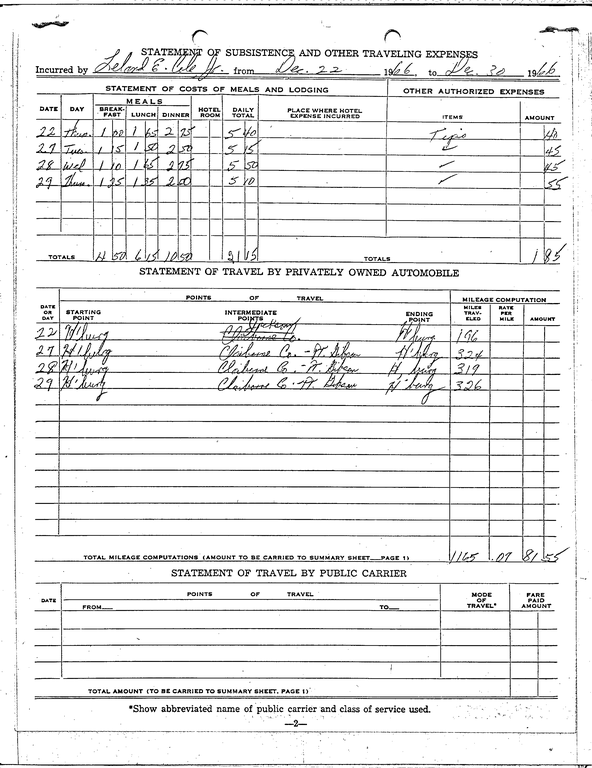 STATEMENT OF SUBSISTENCE AND OTHER TRAVELING EXPENSES
Incurred by Leland E. Cole Jr. from Dec. 22 1966 to Dec. 30 1966
STATEMENT OF COSTS OF MEALS AND LODGING OTHER AUTHORIZED EXPENSES
MEALS
DATE DAY BREAK-FAST LUNCH DINNER HOTEL ROOM DAILY TOTAL PLACE WHERE HOTEL EXPENSE INCURRED ITEMS AMOUNT
22 Thur. 1 00 1 65 2 75 5 40 Tips 40
27 Tues. 1 15 1 50 2 50 5 15 ✓ 45
28 Wed 1 10 1 65 2 75 5 50 ✓ 45
29 Thurs. 1 25 1 35 2 50 5 10 ✓ 55
TOTALS 4 50 6 15 10 50 21 15 TOTALS 1 85
STATEMENT OF TRAVEL BY PRIVATELY OWNED AUTOMOBILE
POINTS OF TRAVEL MILEAGE COMPUTATION
DATE OR DAY STARTING POINT INTERMEDIATE POINTS ENDING POINT MILES TRAV-ELED RATE PER MILE AMOUNT
Jackson
22 H'burg Claiborne Co. H'burg 196
27 H'burg Claiborne Co. - Pt. Gibson H'burg 324
28 H'burg Claiborne Co. - Pt. Gibson H'burg 319
29 H'burg Claiborne Co. - Pt. Gibson H'burg 326
TOTAL MILEAGE COMPUTATIONS (AMOUNT TO BE CARRIED TO SUMMARY SHEET__PAGE 1) 1165 .07 81 55
STATEMENT OF TRAVEL BY PUBLIC CARRIER
DATE POINTS OF TRAVEL MODE OF TRAVEL* FARE PAID AMOUNT
FROM__ TO__
TOTAL AMOUNT (TO BE CARRIED TO SUMMARY SHEET, PAGE 1)
*Show abbreviated name of public carrier and class of service used.
—2—